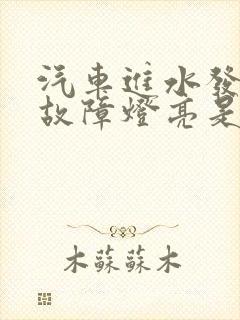 汽車進水發
故障燈亮是
木蘇蘇木